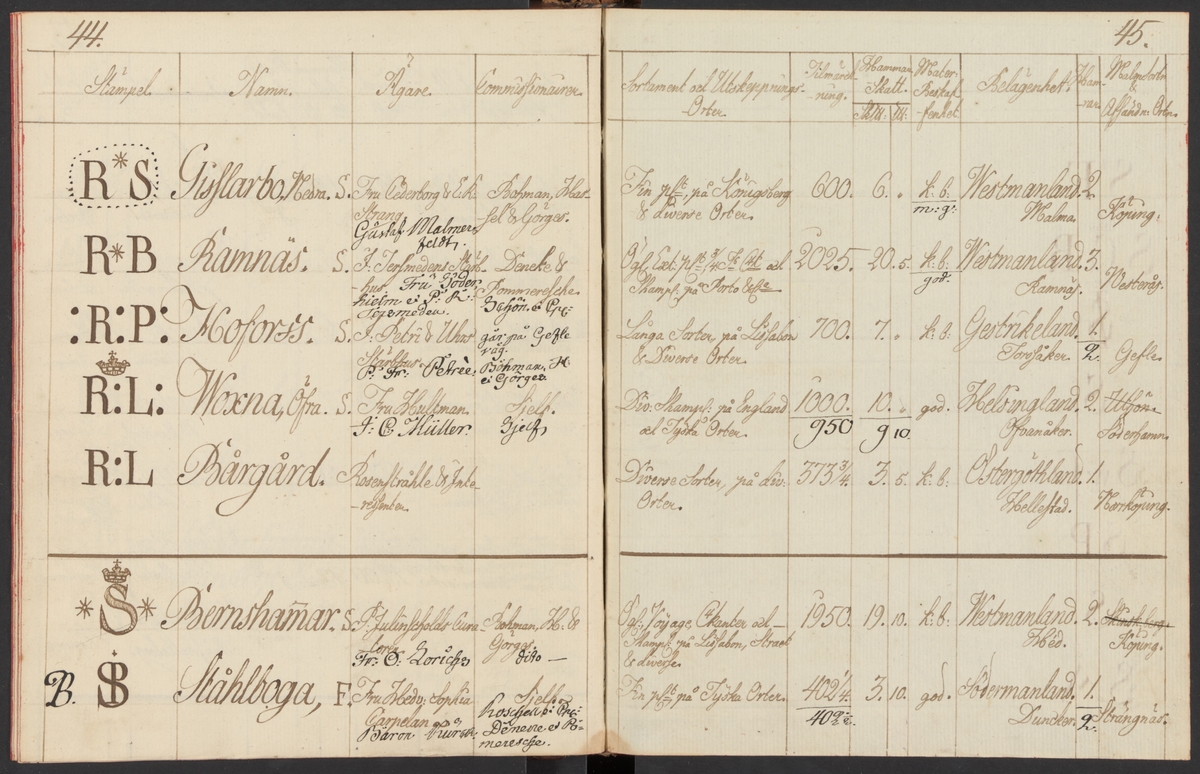 44.
Stämpel.
Namn.
Ägare.
Commissionairer.
R*S
Gisslarbo, Nedra. S.
Fru Cederborg & E. K.
Strang.
Gustaf Malmer-
feldt.
Bohman, Has-
sel & Görges.
R*B
Ramnäs. S.
hus. Fru Söder-
hielm
Tersmeden.
Deneke &
Pommeresche.
Schön.
:R:P:
Hoforss. S.
J: Petri & Uhrs
Stärbhus.
P: Fr: Petrée.
går på Gefle
väg.
Bohman, H.
& Görges.
R:L:
Woxna, Öfra. S.
Fru Hultman.
J: C: Müller.
Sjelf.
Sjelf,
R:L
Bårgård.
Rosenstråhle & Inte-
-ressenter.
*S*
Bernshammar. S.
Fr: D: Zorichs
Bohman, H: &
Görges.
dito —
B. SB
Ståhlboga, F.
Fru Hedv: Sophia
Carpelan
Baron
Sjelf.
Koschell
Deneke & Po-
meresche.
45.
Sortament och Utskeppnings-
Orter.
Tilmärck-
-ning.
Hammar
Skatt.
Mater:
Beskaf-
-fenhet.
Belägenhet.
Ham-
-rar.
&
Afsändn: Orter.
Fin på Königsberg
& diverse Orter.
600. 6. „ k: b.
m: g:
Westmanland. 2.
Malma.
Köping.
och
Stampf: på Porto
2025. 20. 5. k: b:
god.
Westmanland. 3.
Ramnäs.
Westerås.
Långa Sorter på Lissabon
& Diverse Orter.
700. 7. „ k: b:
Gestrikeland. 1.
Torsåker. 2.
Gefle.
Div: Stampf: på England
och Tyska Orter.
1000. 10. „ god.
950 9 10.
Helsingland. 2.
Ofvanåker.
Söderhamn.
Diverse Sorter, på div:
Orter.
373¾. 3. 5. k: b:
Östergöthland. 1.
Hellestad.
Norrköping.
Ogf: Voyage, Ekanter och
Stampf: på Lissabon, Straet
& diverse.
1950. 19. 10. k: b:
Westmanland. 2.
Hed.
Köping.
Fin på Tyska Orter.
402¼. 3. 10. god.
Södermanland. 1.
Duncker. 2.
Strängnäs.